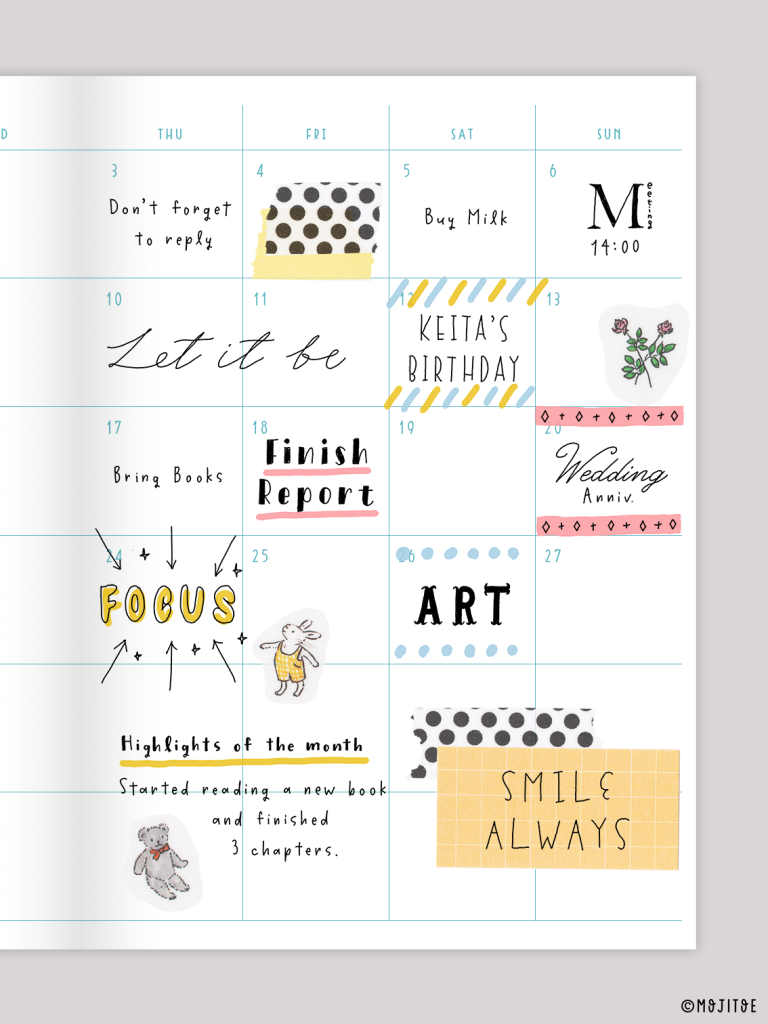 D THU FRI SAT SUN
3 4 5 6
Don't forget
to reply
Buy Milk
Meeting
14:00
10 11 12 13
Let it be
KEITA'S
BIRTHDAY
17 18 19 20
Bring Books
Finish
Report
Wedding
Anniv.
24 25 26 27
FOCUS
ART
Highlights of the month
Started reading a new book
and finished
3 chapters.
SMILE
ALWAYS
©MOJITOE